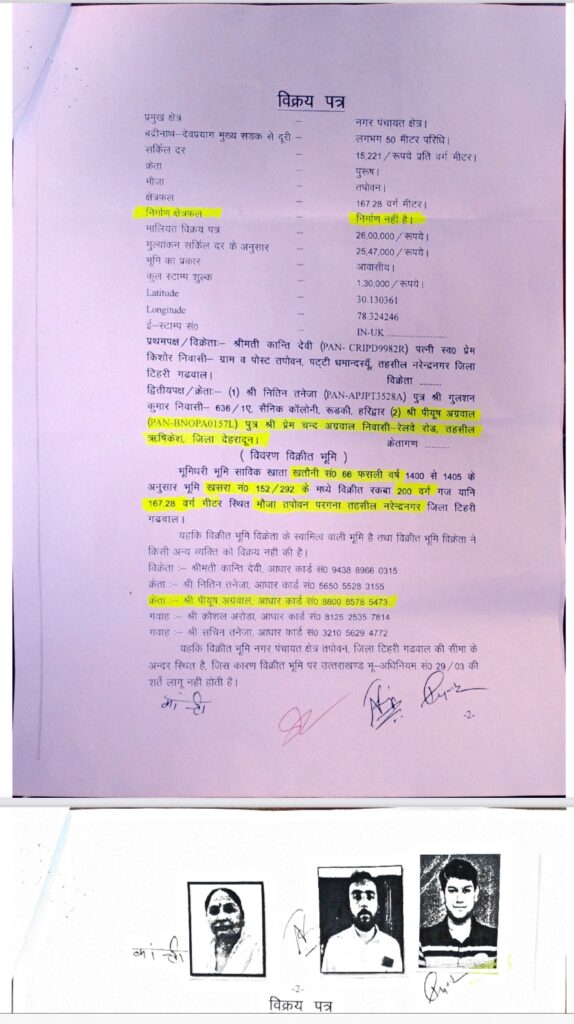 विक्रय पत्र
प्रमुख क्षेत्र – नगर पंचायत क्षेत्र।
बद्रीनाथ–देवप्रयाग मुख्य सडक से दूरी – लगभग 50 मीटर परिधि।
सर्किल दर – 15,221/रूपये प्रति वर्ग मीटर।
क्रेता – पुरूष।
मौजा – तपोवन।
क्षेत्रफल – 167.28 वर्ग मीटर।
निर्माण क्षेत्रफल – निर्माण नही है।
मालियत विक्रय पत्र – 26,00,000/रूपये।
मुल्यांकन सर्किल दर के अनुसार – 25,47,000/रूपये।
भूमि का प्रकार – आवासीय।
कुल स्टाम्प शुल्क – 1,30,000/रूपये।
Latitude – 30.130361
Longitude – 78.324246
ई–स्टाम्प सं0 – IN-UK ......................
प्रथमपक्ष/विक्रेताः– श्रीमती कान्ति देवी (PAN- CRIPD9982R) पत्नी स्व0 प्रेम
किशोर निवासी– ग्राम व पोस्ट तपोवन, पट्टी धमान्दस्यूँ, तहसील नरेन्द्रनगर जिला
टिहरी गढवाल। विक्रेता ..........
द्वितीयपक्ष/क्रेताः– (1) श्री नितिन तनेजा (PAN-APJPT3528A) पुत्र श्री गुलशन
कुमार निवासी– 636/1ए, सैनिक कॉलोनी, रूडकी, हरिद्वार (2) श्री पीयूष अग्रवाल
(PAN-BNOPA0157L) पुत्र श्री प्रेम चन्द अग्रवाल निवासी–रेलवे रोड, तहसील
ऋषिकेश, जिला देहरादून। क्रेतागण ..........
( विवरण विक्रीत भूमि )
भूमिधरी भूमि साविक खाता खतौनी सं0 66 फसली वर्ष 1400 से 1405 के
अनुसार भूमि खसरा नं0 152/292 के मध्ये विक्रीत रकबा 200 वर्ग गज यानि
167.28 वर्ग मीटर स्थित मौजा तपोवन परगना तहसील नरेन्द्रनगर जिला टिहरी
गढवाल।
यहकि विक्रीत भूमि विक्रेता के स्वामित्व वाली भूमि है तथा विक्रीत भूमि विक्रेता ने
किसी अन्य व्यक्ति को विक्रय नही की है।
विक्रेता :– श्रीमती कान्ति देवी, आधार कार्ड सं0 9438 8966 0315
क्रेता :– श्री नितिन तनेजा, आधार कार्ड सं0 5650 5528 3155
क्रेता :– श्री पीयूष अग्रवाल, आधार कार्ड सं0 8800 8578 5473
गवाह :– श्री कौशल अरोडा, आधार कार्ड सं0 8125 2535 7814
गवाह :– श्री सचिन तनेजा, आधार कार्ड सं0 3210 5629 4772
यहकि विक्रीत भूमि नगर पंचायत क्षेत्र तपोवन, जिला टिहरी गढवाल की सीमा के
अन्दर स्थित है, जिस कारण विक्रीत भूमि पर उत्तराखण्ड भू–अधिनियम सं0 29/03 की
शर्त लागू नही होती है।
-2-
-2-
विक्रय पत्र